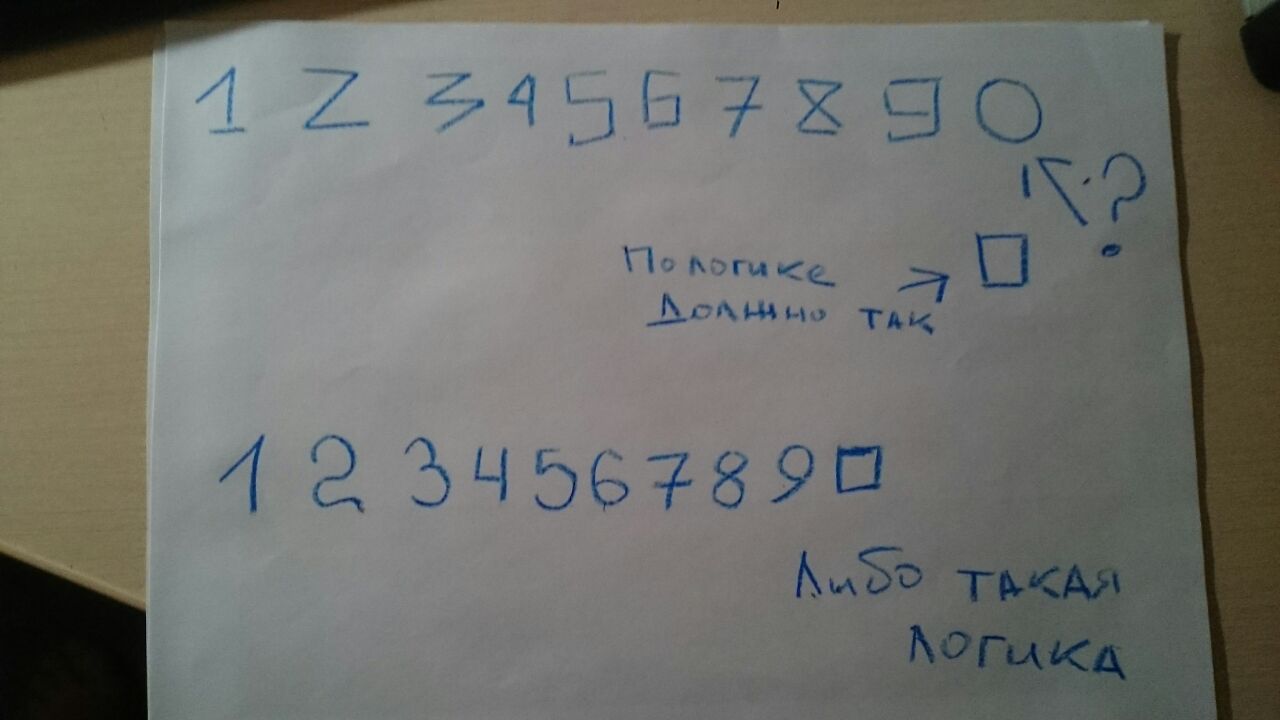 1 2 3 4 5 6 7 8 9 0
?
По логике
Должно так
1 2 3 4 5 6 7 8 9
Либо такая
логика